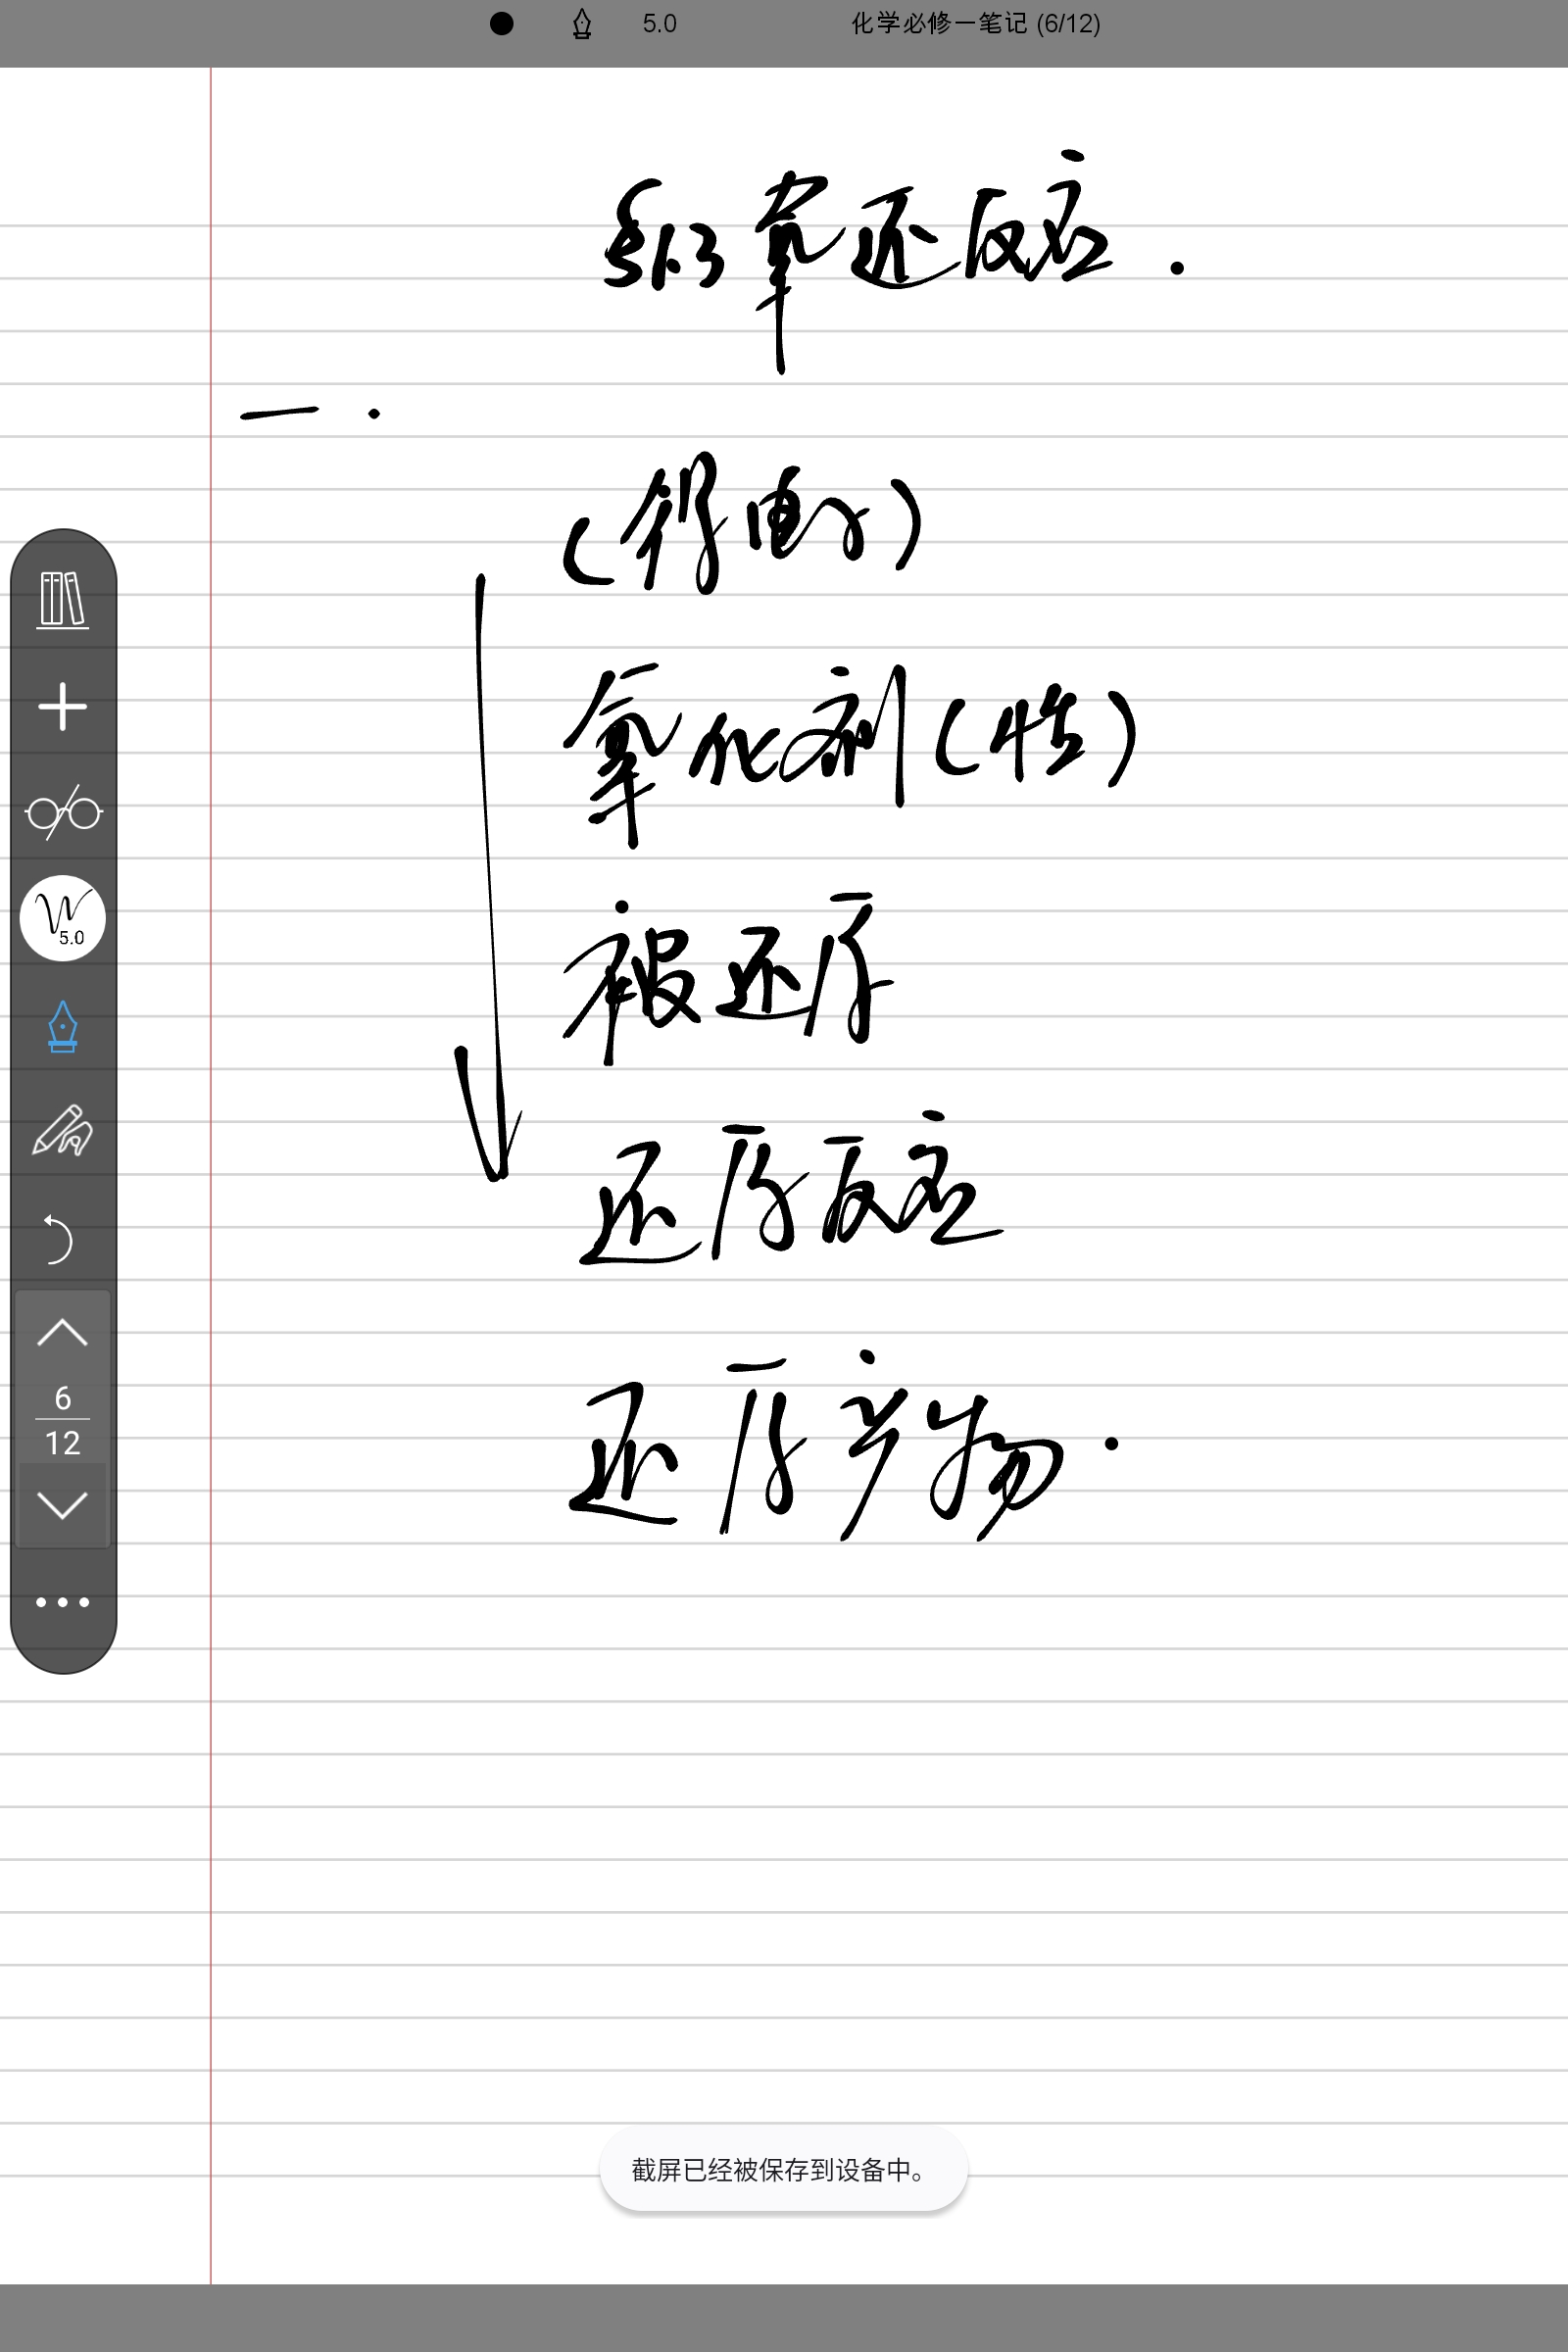 5.0 化学必修一笔记 (6/12)
氧还反应.
一.
(得电子)
氧化剂(性)
被还原
5.0
还原反应
还原产物.
6
12
截屏已经被保存到设备中。